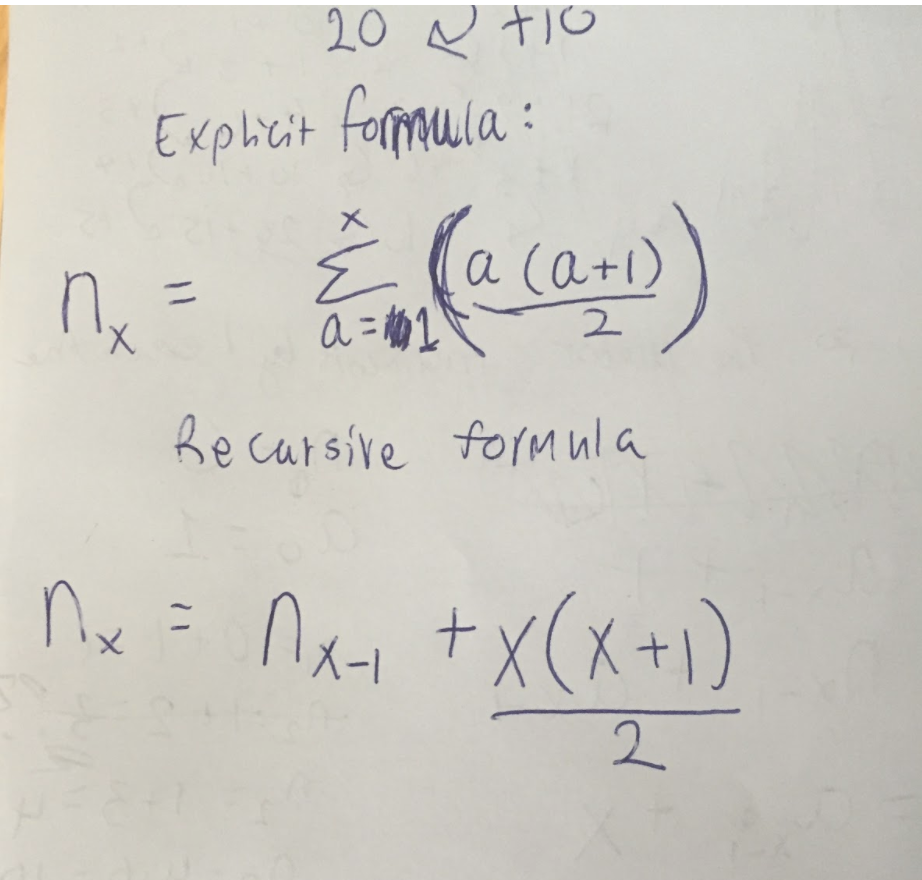 20 ↲ +10
Explicit formula:
n_x = \sum_{a=1}^{x} \left( \frac{a(a+1)}{2} \right)
Recursive formula
n_x = n_{x-1} + \frac{x(x+1)}{2}